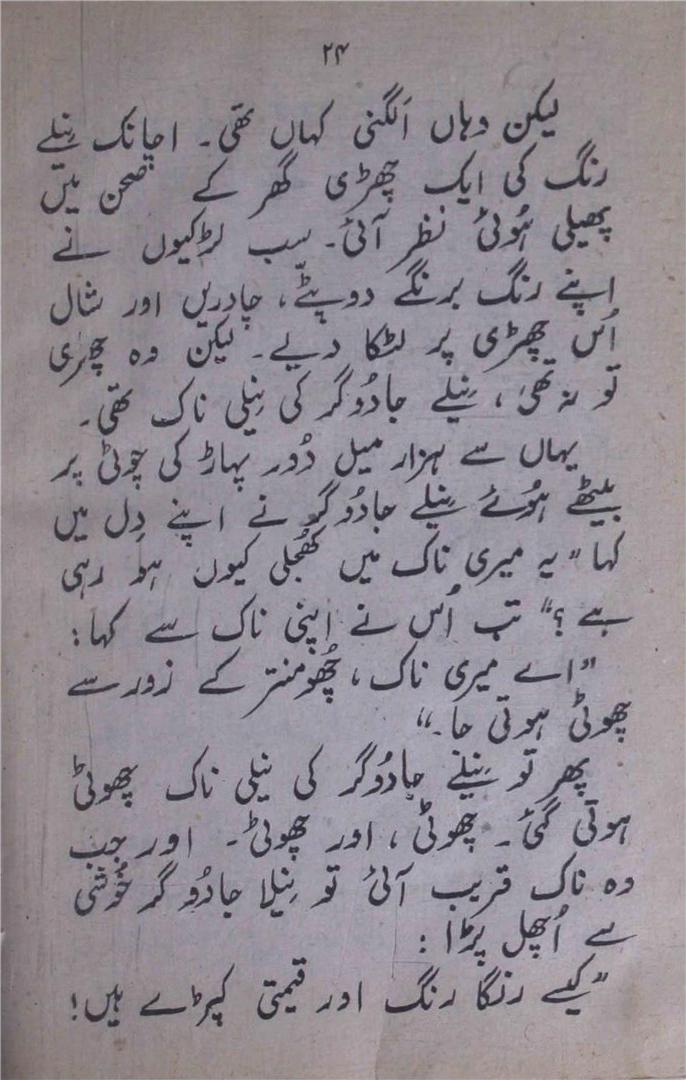 ۲۴
لیکن وہاں اَلگنی کہاں تھی۔ اچانک نِیلے
رنگ کی ایک چھڑی گھر کے صحن میں
پھیلی ہُوئی نظر آئی۔ سب لڑکیوں نے
اپنے رنگ برنگے دوپٹّے، چادریں اور شال
اُس چھڑی پر لٹکا دیے۔ لیکن وہ چھڑی
تو نہ تھی، نِیلے جادُوگر کی نِیلی ناک تھی۔
یہاں سے ہزار میل دُور پہاڑ کی چوٹی پر
بیٹھے ہُوئے نِیلے جادُوگر نے اپنے دِل میں
کہا "یہ میری ناک میں کُھجلی کیوں ہو رہی
ہے؟" تب اُس نے اپنی ناک سے کہا:
"اے میری ناک، چُھومنتر کے زور سے
چھوٹی ہوتی جا۔"
پھر تو نِیلے جادُوگر کی نیلی ناک چھوٹی
ہوتی گئی۔ چھوٹی، اور چھوٹی۔ اور جب
وہ ناک قریب آئی تو نِیلا جادُوگر خُوشی
سے اُچھل پڑا:
"کیسے رنگا رنگ اور قیمتی کپڑے ہیں!